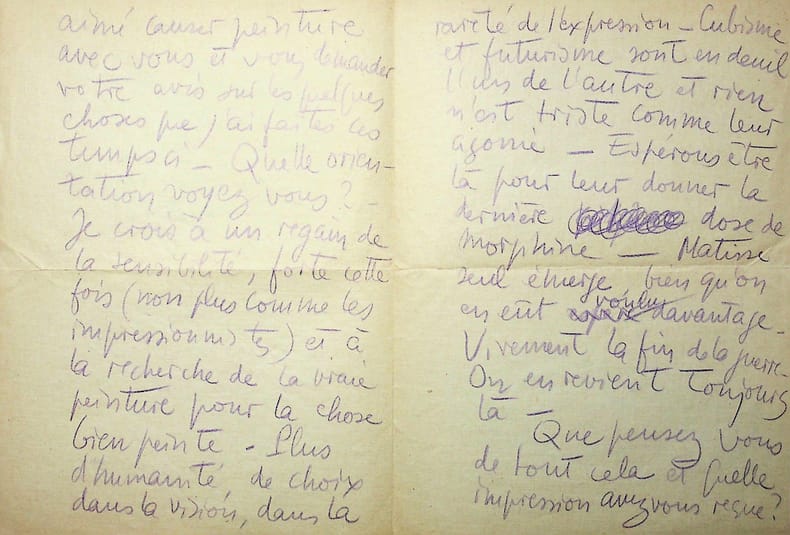 aimé causer peinture
avec vous et vous demander
votre avis sur les quelques
choses que j'ai faites ces
temps ci – Quelle orien-
tation voyez vous ? –
Je crois à un regain de
la sensibilité, forte cette
fois (non plus comme les
impressionnistes) et à
la recherche de la vraie
peinture pour la chose
bien peinte – Plus
d'humanité, de choix
dans la vision, dans la
rareté de l'expression – Cubisme
et futurisme sont en deuil
l'un de l'autre et rien
n'est triste comme leur
agonie – Espérons être
là pour leur donner la
dernière dose de
morphine – Matisse
seul émerge bien qu'on
en eût voulu davantage –
Vivement la fin de la guerre –
On en revient toujours
là –
Que pensez vous
de tout cela et quelle
impression avez vous reçue ?